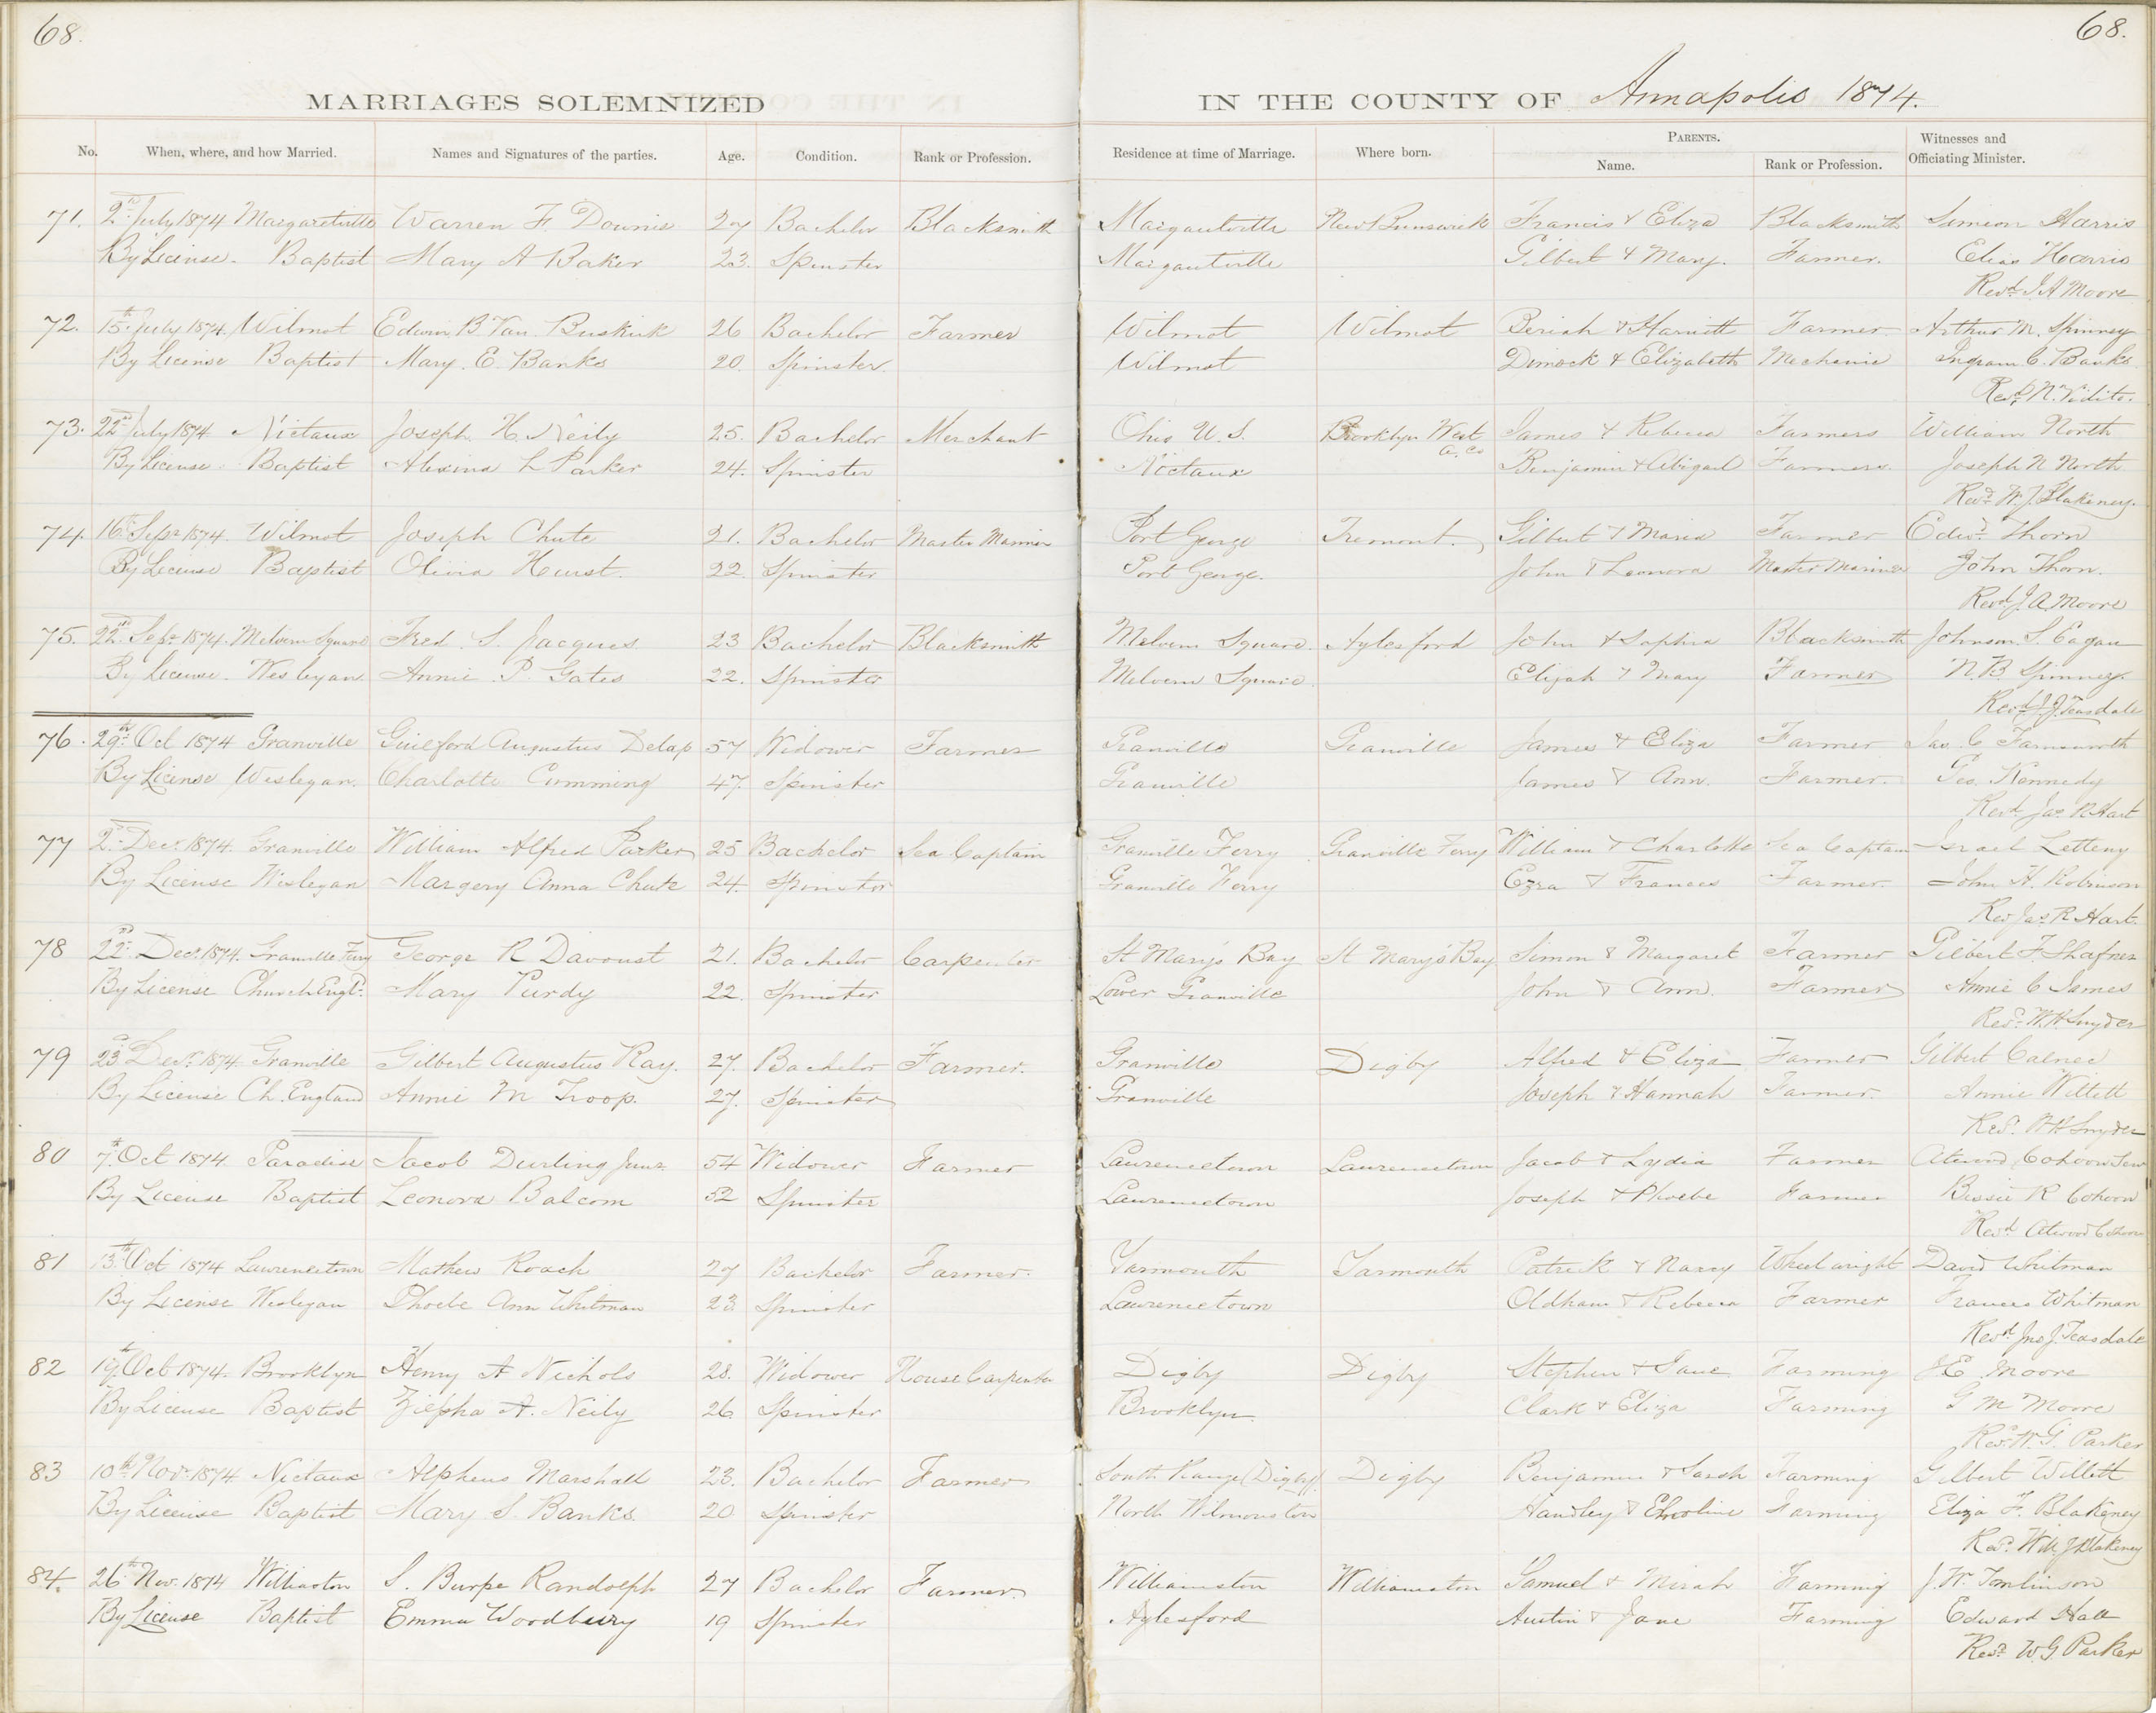 68.
68.
MARRIAGES SOLEMNIZED IN THE COUNTY OF Annapolis 1874.
No. When, where, and how Married. Names and Signatures of the parties. Age. Condition. Rank or Profession. Residence at time of Marriage. Where born. PARENTS. Name. Rank or Profession. Witnesses and Officiating Minister.
71. 2nd July 1874 Margaretville Warren F. Downie 27 Bachelor Blacksmith Margaretville New Brunswick Francis & Eliza Blacksmith Simeon Harris
By License. Baptist Mary A Baker 23. Spinster Margaretville Gilbert & Mary. Farmer. Elias Harris
Revd. J A Moore
72. 15th July 1874 Wilmot Edwin B Van Buskirk 26 Bachelor Farmer Wilmot Wilmot Beriah & Harriett Farmer Arthur M. Spinney
By License Baptist Mary. E. Banks 20. Spinster. Wilmot Dimock & Elizabeth Mechanic Ingram C. Banks
Revd N. Vidito.
73. 22nd July 1874 Nictaux Joseph. H. Neily 25. Bachelor Merchant Ohio U. S. Brooklyn West A. Co James & Rebecca Farmers William North
By License. Baptist Alexina L Parker 24. Spinster Nictaux Benjamin & Abigail Farmers. Joseph N North
Revd. W. J. Blakeney.
74. 16th Sepr 1874. Wilmot Joseph Chute 21. Bachelor Master Mariner Port George Tremont. Gilbert & Maria Farmer Edwd. Thorn
By License Baptist Olivia Hurst. 22. Spinster Port George. John & Leonora Master Mariner John Thorn.
Revd. J. A. Moore
75. 22nd Sepr 1874. Melvern Square Fred. S. Jacques 23 Bachelor Blacksmith Melvern Square. Aylesford John & Sophia Blacksmith Johnson. S. Eagan
By License. Wesleyan Annie. P. Gates 22. Spinster Melvern Square. Elijah & Mary Farmer N. B. Spinney.
Revd J. J. Teasdale
76. 29th Oct 1874 Granville Guilford Augustus Delap 57 Widower Farmer Granville Granville James & Eliza Farmer Jas. C Farnsworth
By License Wesleyan. Charlotte Cumming 47. Spinster Granville James & Ann. Farmer. Geo. Kennedy
Revd Jas R Hart
77 2nd Decr. 1874. Granville William Alfred Parker 25 Bachelor Sea Captain Granville Ferry Granville Ferry William & Charlotte Sea Captain Israel Letteny
By License Wesleyan Margery Anna Chute 24. Spinster Granville Ferry Ezra & Frances Farmer. John H. Robinson
Rev Jas R Hart.
78 22nd Decr. 1874. Granville Ferry George R Davoust 21. Bachelor Carpenter St Mary's Bay St Mary's Bay Simon & Margaret Farmer Gilbert F. Shafner
By License Church Engld. Mary Purdy 22. Spinster Lower Granville John & Ann. Farmer Annie C James
Revd. W. H Snyder
79 23d Decr. 1874. Granville Gilbert Augustus Ray. 27. Bachelor Farmer. Granville Digby Alfred & Eliza Farmer Gilbert Calnec
By License Ch. England Annie M Troop. 27. Spinster Granville Joseph & Hannah Farmer. Annie Willett
Revd. W H Snyder
80 7th Oct 1874. Paradise Jacob Durling Junr. 54 Widower Farmer Lawrencetown Lawrencetown Jacob & Lydia Farmer Atwood Cohoon Senr
By License Baptist Leonora Balcom 52 Spinster Lawrencetown Joseph & Phoebe Farmer Bessie R Cohoon
Revd. Atwood Cohoon
81 13th Oct 1874 Lawrencetown Mathew Roach 27 Bachelor Farmer. Yarmouth Yarmouth Patrick & Nancy Wheelwright David Whitman
By License Wesleyan Phoebe Ann Whitman 23 Spinster Lawrencetown Oldham & Rebecca Farmer Frances Whitman
Revd Jno J. Teasdale
82 19th Oct 1874. Brooklyn Henry A Nichols 28. Widower House Carpenter Digby Digby Stephen & Jane Farming J E Moore
By License Baptist Zilpha A. Neily 26. Spinster Brooklyn. Clark & Eliza Farming G M Moore
Revd. W. G. Parker
83 10th Novr. 1874 Nictaux Alpheus Marshall 23. Bachelor Farmer South Range (Digby) Digby Benjamin & Sarah Farming Gilbert Willett
By License Baptist Mary S. Banks. 20 Spinster North Wilmonston Handley & Farming Eliza F. Blakeney
Revd. Will. J Blakeney
84. 26th Nov. 1874 Williamston S. Burpe Randolph 27 Bachelor Farmer. Williamston Williamston Samuel & Miriah Farming J. W. Tomlinson
By License Baptist Emma Woodbury 19 Spinster Aylesford Austin & Jane Farming Edward Hall
Revd. W. G Parker